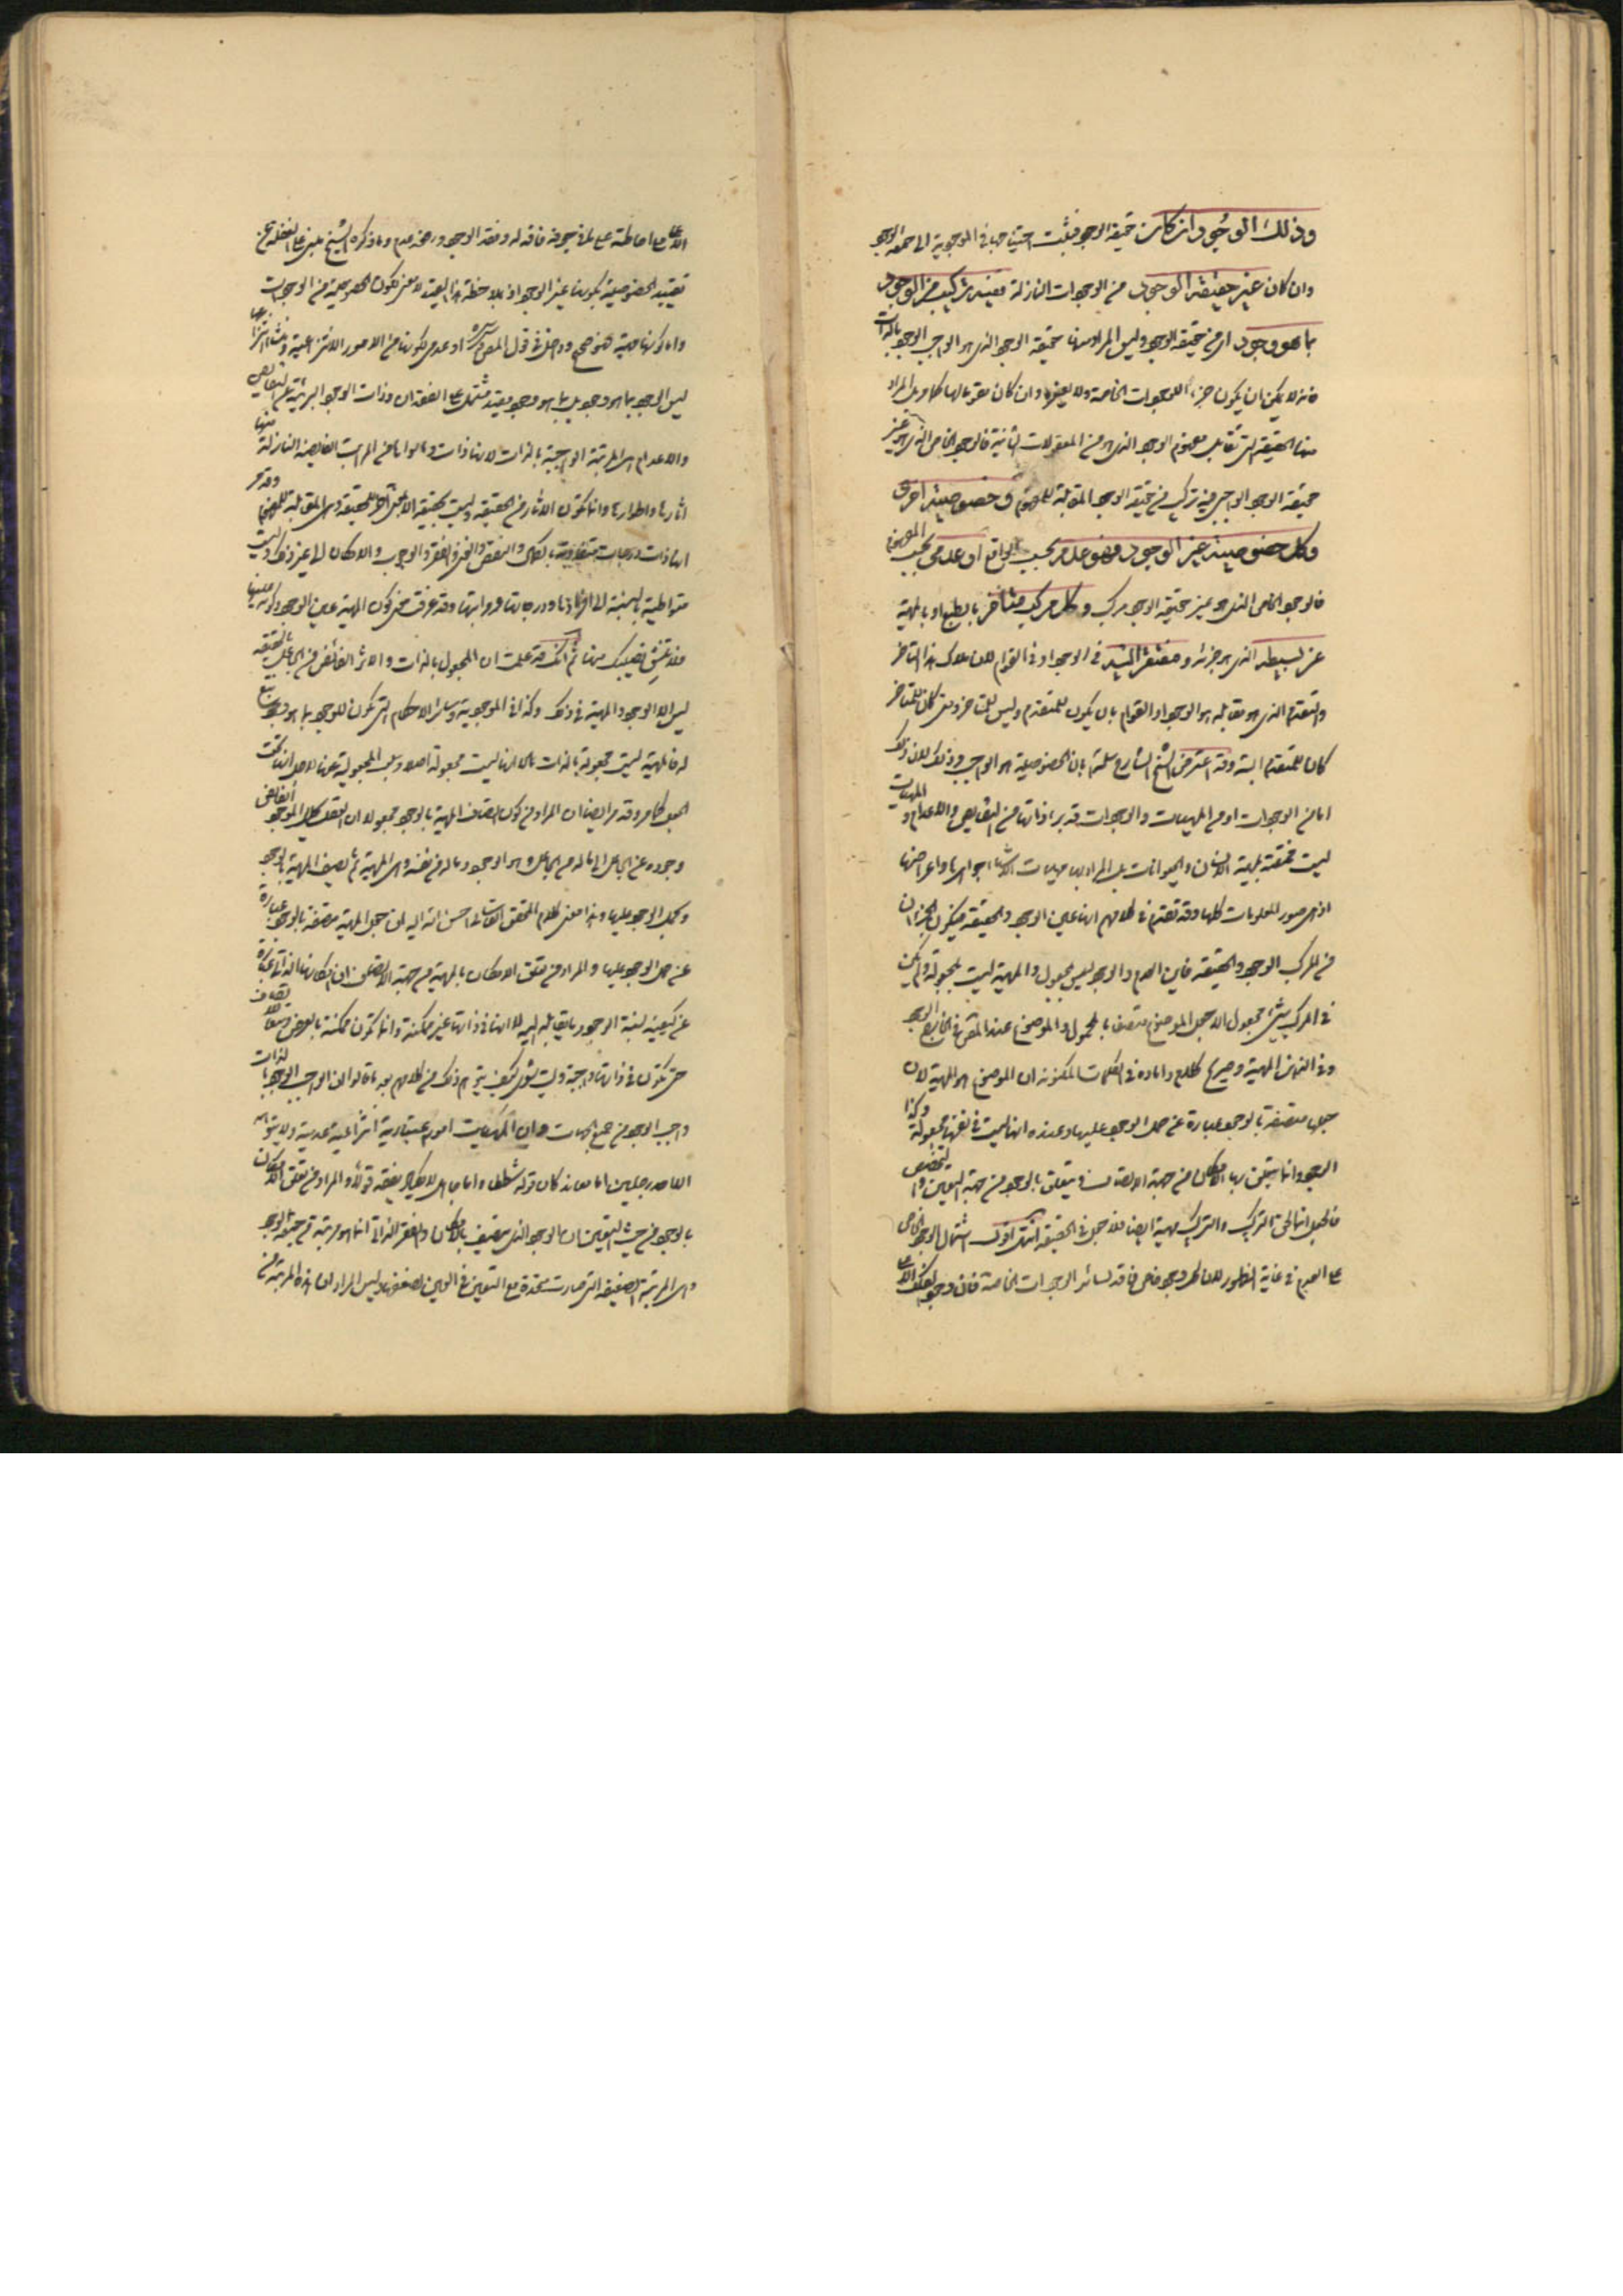 وذلك الوجود ان كان حقيقة الوجود فيثبت احتياجها في الموجودية الى حقيقة الوجود
وان كان غير حقيقة الوجود من الوجودات النازلة ففيه تركيب من الوجود
بما هو وجود اى من حقيقة الوجود وليس المراد منها حقيقة الوجود الذى هو الواجب الوجود بالذات
فانه لا يمكن ان يكون جزء اللوجودات الخاصة ولا لغيرها وان كان مقومالها كما مر بل المراد
منها الحقيقة التى تقابل مفهوم الوجود الذى هو من المعقولات الثانية فالوجود الخاص الذى هو غير
حقيقة الوجود الواجبى فيه تركيب من حقيقة الوجود المقابلة للمفهوم و خصوصية اخرى
وكل خصوصية غير الوجود فهو عدم بحسب الواقع او عدمى بحسب المفهوم
فالوجود الخاص الذى هو غير حقيقة الوجود مركب وكل مركب متأخر بالطبع او بالمهية
عن بسيطه الذى هو جزئه و مفتقر اليه فى الوجود او فى القوام لان ملاك هذا التأخر
والتقدم الذى هو مقابله هو الوجود او القوام بان يكون للمتقدم وليس للمتأخر ومتى كان للمتأخر
كان للمتقدم البتة وقد اعترض الشيخ الشارح سلمه بان الخصوصية هو الواجب وذلك لان ذلك
اما من الوجودات او من المهيات والوجودات قد يراد ذاتها من النقايص والاعدام و المهيات
ليست مختصة بمهية الانسان والحيوانات بل المراد بها مهيات الاشياء جواهرها واعراضها
اذ هى صور المعلومات كلها وقد تقدم فى كلامهم انها عين الوجود والحقيقة فيكون الجزءان
من المركب الوجود والحقيقة فاين العدم والوجود ليس بمجعول والمهية ليست بمجعولة ولم يكن
فى المركب شىء مجعول الا جعل الموضوع متصفا بالمحمول والموضوع عند المتقدم فى الخارج الوجود
وفى الذهن المهية وصريح كلام داماده فى الكلمات المكنونة ان الموضوع هو المهية لان
جعلها متصفة بالوجود عبارة عن حمل الوجود عليها وعنده انها ليست فى نفسها مجعولة وكذا
الوجود وانما يتعلق بها الامكان من جهة الاتصاف ويتعلق بالوجود من جهة التعين والتخصص
فالجعل انما لحق التركيب والتركيب مهية ايضا فلا جعل فى الحقيقة انتهى اقول اشتمال الوجود الخاص
على العدم فى غاية الظهور لان كل وجود خاص فاقد لسائر الوجودات الخاصة فان وجود الفلك الاعلى
الاعلى مع احاطته على ما فى جوفه فاقد له وفقد الوجود ورفعه عدم وما ذكره الشيخ مبنى على الغفلة عن
تقييد الخصوصية بكونها غير الوجود اذ بملاحظة هذا القيد لا معنى لكون الخصوصية من الوجودات
واما كونها مهية فهو صحيح وداخل فى قول المصنف قدس سره او عدمى لكونها من الامور الانتزاعية ومنشأ انتزاعها
ليس الوجود بما هو وجود بل بما هو وجود مقيد مشتمل على الفقدان وذات الوجود البريئة عن النقايص
والاعدام هى المرتبة الواجبة بالذات لانها ذات وما سواها من المراتب الفايضة النازلة منها
اثارها واطوارها وانما تكون الاثار من الحقيقة وليست بحقيقة الا بمعنى اخر للحقيقة وهى المقابلة للمفهوم وقد مر
انها ذات درجات متفاوتة بالكمال والنقص والغنى والفقر والوجوب والامكان الى غير ذلك وليست
متواطية بالنسبة الى افرادها ودرجاتها ومراتبها وقد عرفت معنى كون المهية عين الوجود وكونه عينها
فلا نعيده بعينك منها ثم انك قد علمت ان المجعول بالذات والاثر الفائض من الجاعل بالحقيقة
ليس الا الوجود والمهية فى ذلك وكذا فى الموجودية وسائر الاحكام التى يكون للوجود بما هو وجود تابع
له فالمهية ليست مجعولة بالذات لا انها ليست مجعولة اصلا وسلب المجعولية عنها لاجل انها تحت
الجعل كما مر وقد مر ايضا ان المراد من كون اتصاف المهية بالوجود مجعولا ان العقل يحلل الموجود الفائض
وجوده عن الجاعل الى ما له من الجاعل وهو الوجود وما له من نفسه وهى المهية ثم يصف المهية بالوجود
ويحمل الوجود عليها وهذا معنى كلام المحقق القاسانى احسن الله اليه ان جعل المهية متصفة بالوجود عبارة
عن حمل الوجود عليها والمراد من تعلق الامكان بالمهية من جهة الاتصاف ان امكانها الذاتى عبارة
عن كيفية نسبة الوجود وما يقابله اليه لا انها فى ذاتها غير ممكنة وانما تكون ممكنة بالعرض وبعد الاتصاف
حتى تكون فى ذاتها واجبة وليت شعرى كيف يتوهم ذلك من كلامهم بعد ما قالوا ان الواجب الوجود بالذات
واجب الوجود من جميع الجهات وان الممكنات امور اعتبارية انتزاعية عدمية ولا يتوهمه
الا احد رجلين اما معاند كان قوله شططا واما جاهل لا يكاد يفقه قولا والمراد من تعلق الامكان
بالوجود من حيث التعين ان الوجود الذى يتصف بالامكان والفقر الذاتى انما هو مرتبة من حقيقة الوجود
وهى المرتبة الضعيفة التى صارت متحدة مع التعين فى العين لضعفها وليس المراد ان هذه المرتبة من